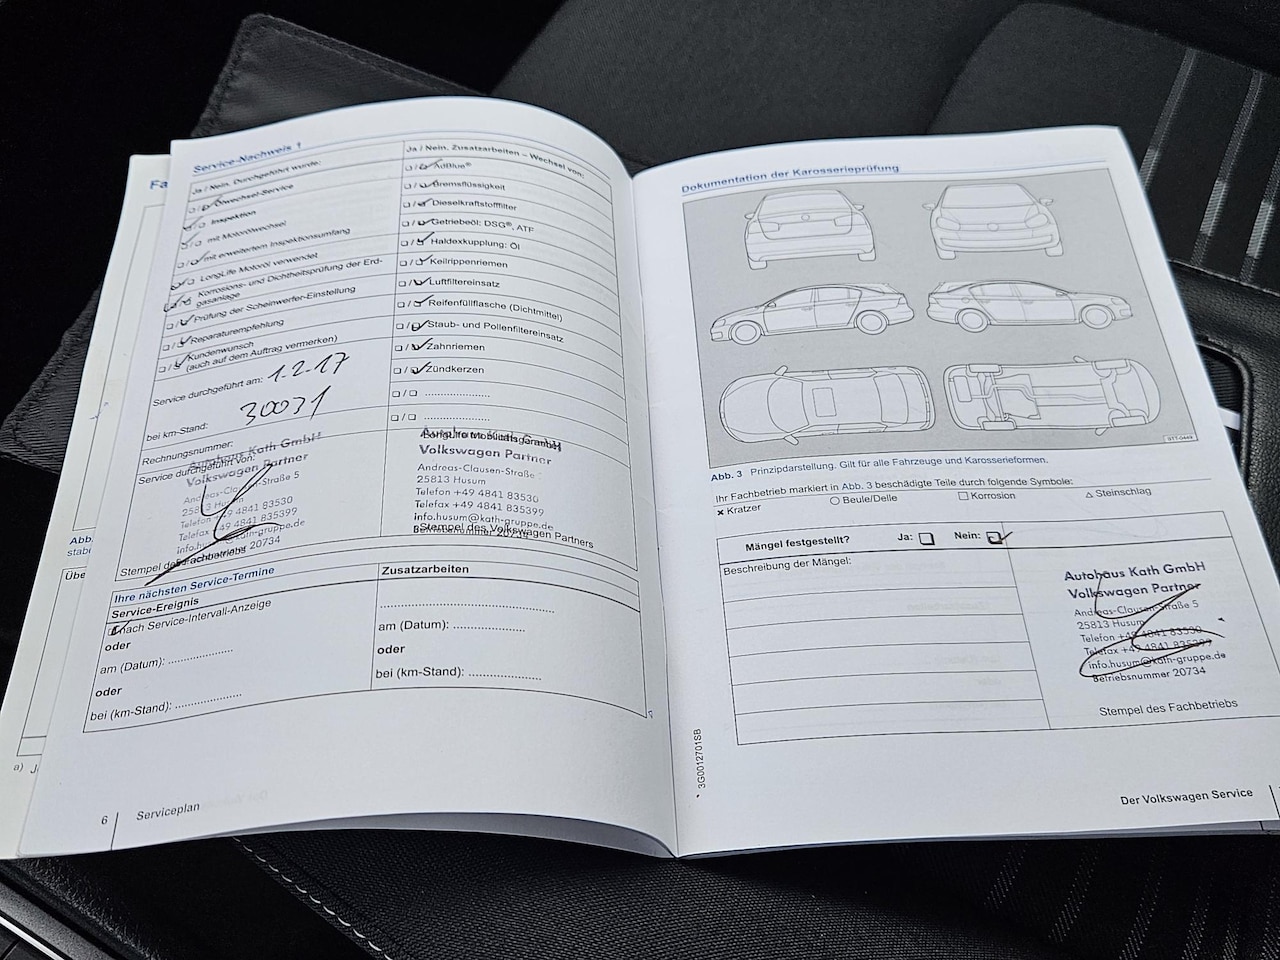 Fa
Abb.
stabe
Übe
a) J
Service-Nachweis 1
Ja / Nein. Durchgeführt wurde:
Ölwechsel-Service
Inspektion
mit Motorölwechsel
mit erweitertem Inspektionsumfang
LongLife Motoröl verwendet
Korrosions- und Dichtheitsprüfung der Erd-
gasanlage
Prüfung der Scheinwerfer-Einstellung
Reparaturempfehlung
Kundenwunsch
(auch auf dem Auftrag vermerken)
Service durchgeführt am: 1.2.17
bei km-Stand: 30031
Rechnungsnummer:
Service durchgeführt von:
Autohaus Kath GmbH
Volkswagen Partner
Andreas-Clausen-Straße 5
25813 Husum
Telefon +49 4841 83530
Telefax +49 4841 835399
info.husum@kath-gruppe.de
Betriebsnummer 20734
Stempel des Fachbetriebs
Ja / Nein. Zusatzarbeiten – Wechsel von:
AdBlue®
Bremsflüssigkeit
Dieselkraftstofffilter
Getriebeöl: DSG®, ATF
Haldexkupplung: Öl
Keilrippenriemen
Luftfiltereinsatz
Reifenfüllflasche (Dichtmittel)
Staub- und Pollenfiltereinsatz
Zahnriemen
Zündkerzen
Autohaus Kath GmbH
Volkswagen Partner
Andreas-Clausen-Straße
25813 Husum
Telefon +49 4841 83530
Telefax +49 4841 835399
info.husum@kath-gruppe.de
Stempel des Volkswagen Partners
Ihre nächsten Service-Termine
Service-Ereignis
nach Service-Intervall-Anzeige
oder
am (Datum): ....................
oder
bei (km-Stand): ....................
Zusatzarbeiten
am (Datum): ....................
oder
bei (km-Stand): ....................
6 Serviceplan
Dokumentation der Karosserieprüfung
Abb. 3 Prinzipdarstellung. Gilt für alle Fahrzeuge und Karosserieformen.
Ihr Fachbetrieb markiert in Abb. 3 beschädigte Teile durch folgende Symbole:
× Kratzer ○ Beule/Delle □ Korrosion △ Steinschlag
Mängel festgestellt? Ja: Nein:
Beschreibung der Mängel:
Autohaus Kath GmbH
Volkswagen Partner
Andreas-Clausen-Straße 5
25813 Husum
Telefon +49 4841 83530
Telefax +49 4841 835399
info.husum@kath-gruppe.de
Betriebsnummer 20734
Stempel des Fachbetriebs
3G0012701SB
Der Volkswagen Service